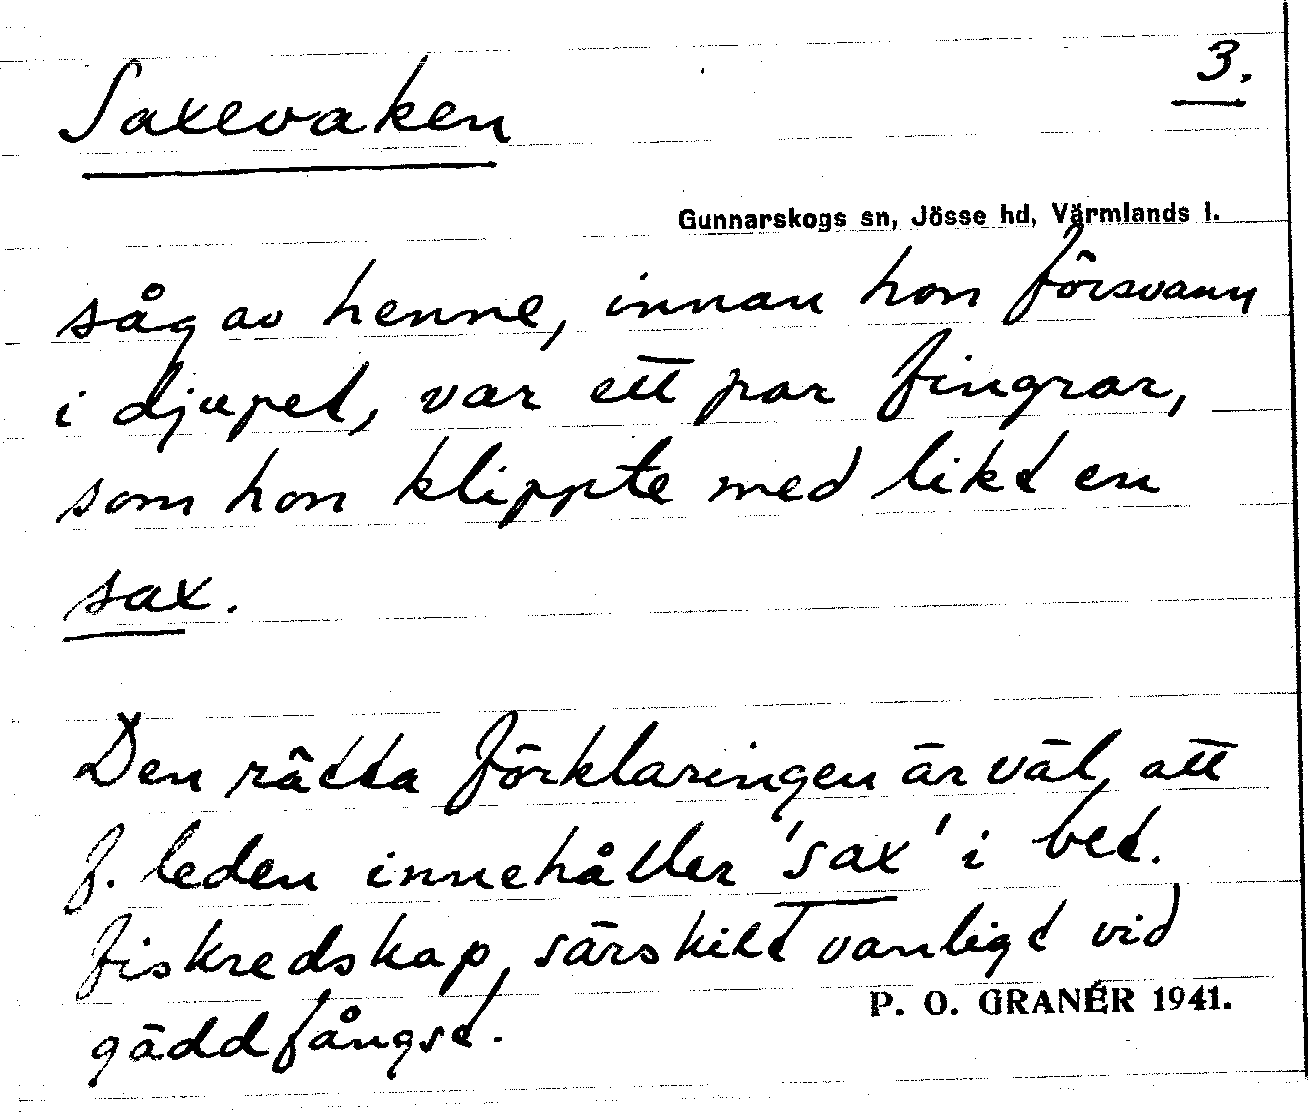 3.
Saxevaken
Gunnarskogs sn, Jösse hd, Värmlands l.
såg av henne, innan hon försvann
i djupet, var ett par fingrar,
som hon klippte med likt en
sax.
Den rätta förklaringen är väl, att
f. leden innehåller 'sax' i bet.
fiskredskap, särskilt vanligt vid
P. O. GRANÉR 1941.
gäddfångst.